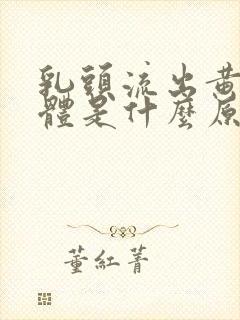 乳頭流出黃
體是什麼原
董紅菁